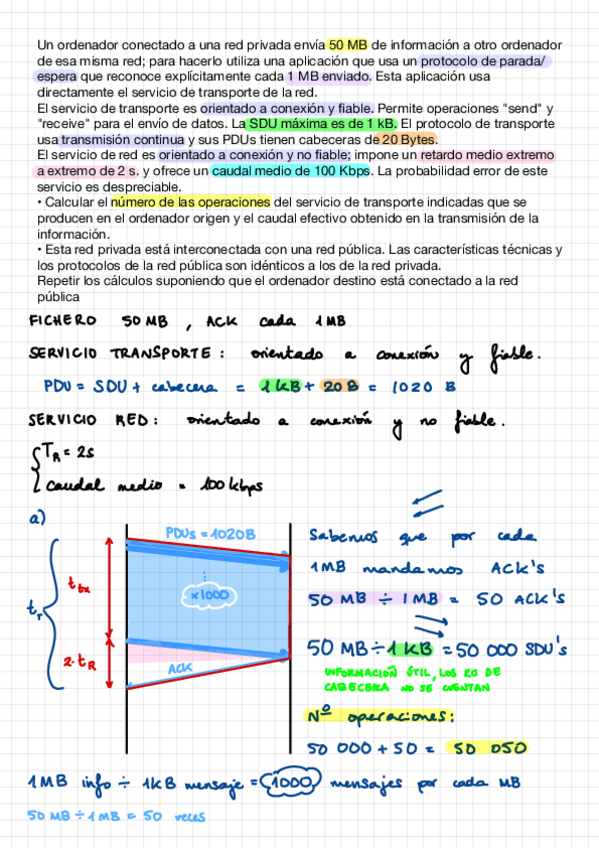 Un ordenador conectado a una red privada envía 50 MB de información a otro ordenador
de esa misma red; para hacerlo utiliza una aplicación que usa un protocolo de parada/
espera que reconoce explícitamente cada 1 MB enviado. Esta aplicación usa
directamente el servicio de transporte de la red.
El servicio de transporte es orientado a conexión y fiable. Permite operaciones "send" y
"receive" para el envío de datos. La SDU máxima es de 1 kB. El protocolo de transporte
usa transmisión continua y sus PDUs tienen cabeceras de 20 Bytes.
El servicio de red es orientado a conexión y no fiable; impone un retardo medio extremo
a extremo de 2 s. y ofrece un caudal medio de 100 Kbps. La probabilidad error de este
servicio es despreciable.
• Calcular el número de las operaciones del servicio de transporte indicadas que se
producen en el ordenador origen y el caudal efectivo obtenido en la transmisión de la
información.
• Esta red privada está interconectada con una red pública. Las características técnicas y
los protocolos de la red pública son idénticos a los de la red privada.
Repetir los cálculos suponiendo que el ordenador destino está conectado a la red
pública
FICHERO 50 MB , ACK cada 1MB
SERVICIO TRANSPORTE : orientado a conexión y fiable.
PDU = SDU + cabecera = 1 KB + 20 B = 1020 B
SERVICIO RED : orientado a conexión y no fiable.
TR = 2s
caudal medio = 100 kbps
a)
PDUs = 1020B
x1000
ttx
tr
2·tR
ACK
Sabemos que por cada
1MB mandamos ACK's
50 MB ÷ 1MB = 50 ACK's
50 MB ÷ 1 KB = 50 000 SDU's
INFORMACIÓN ÚTIL, LOS 20 DE
CABECERA NO SE CUENTAN
Nº operaciones:
50 000 + 50 = 50 050
1MB info ÷ 1KB mensaje = 1000 mensajes por cada MB
50 MB ÷ 1 MB = 50 veces